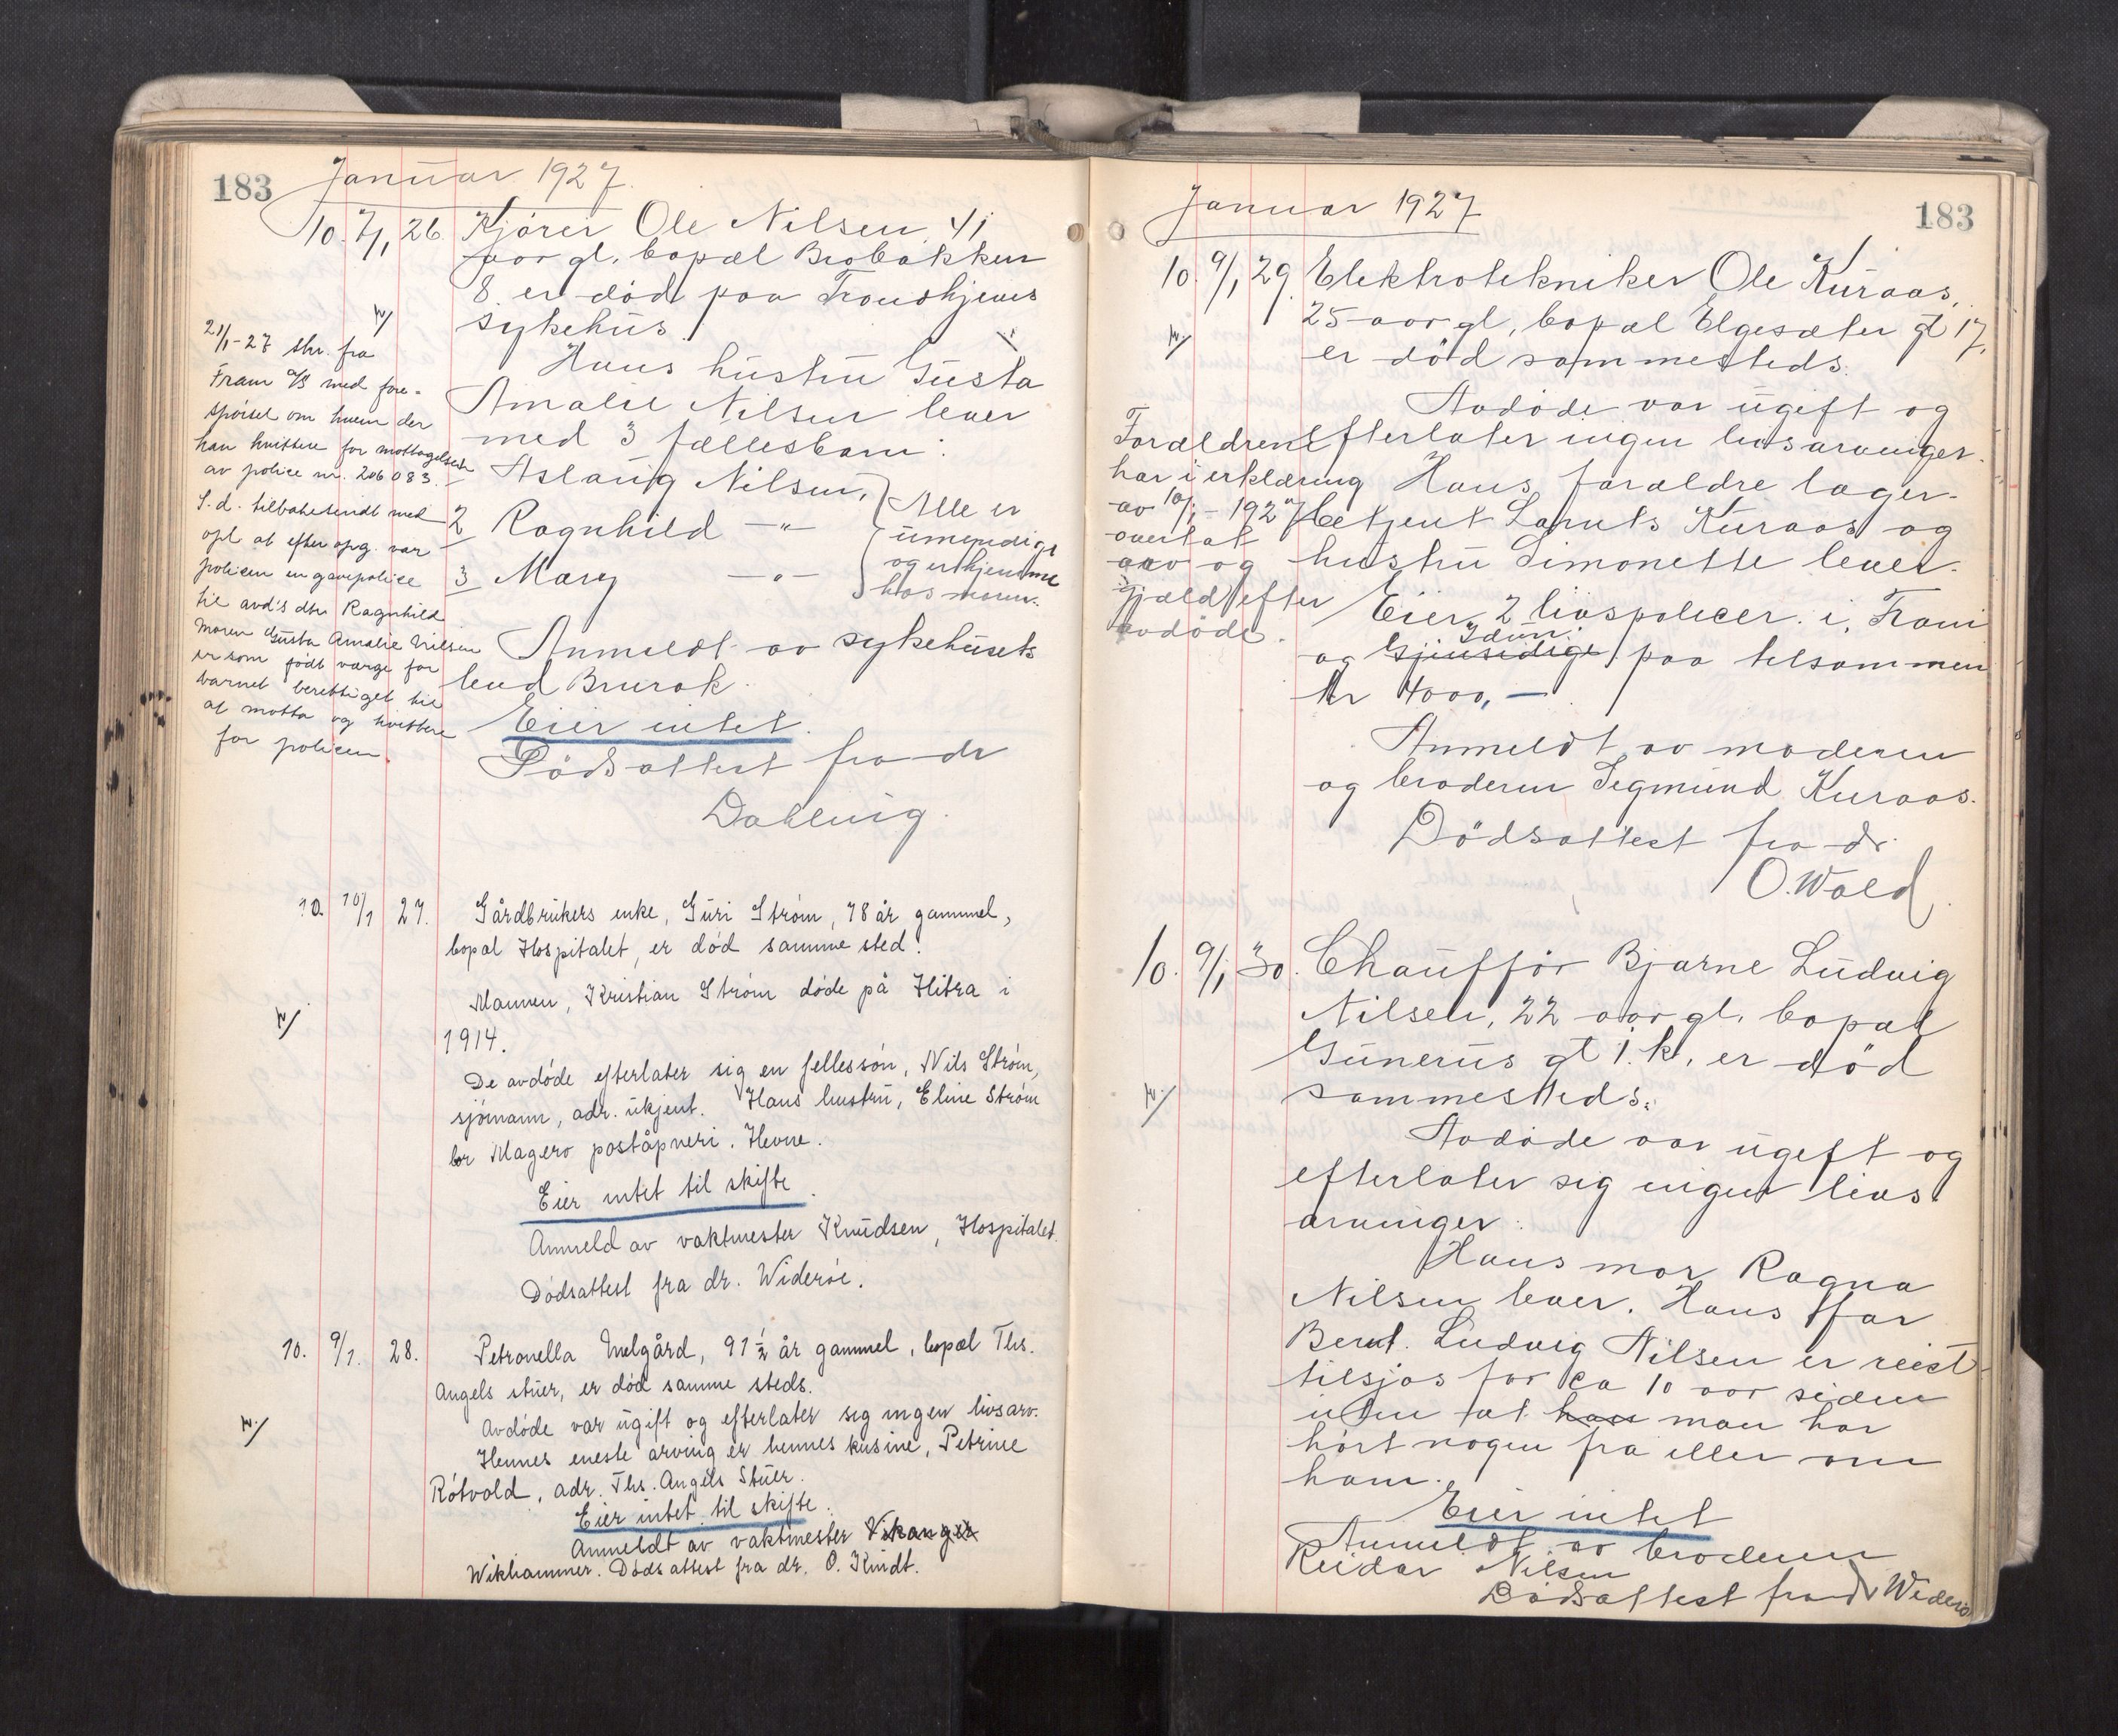 183
Januar 1927.
10. 7/1 26 Kjører Ole Nilsen, 41
aar gl. bopæl Brobakken
8. er død paa Trondhjems
sykehus.
Hans hustru Gusta
Amalie Nilsen lever
med 3 fællesbarn:
Aslaug Nilsen,
2 Ragnhild —"—
3 Mary —"—
Alle er
umyndige
og er hjemme
hos moren.
Anmeldt av sykehusets
bud Brurok.
Eier intet.
Dødsattest fra dr
Dahlvig.
21/1-27 skr. fra
Fram A/S med fore-
spørsel om hvem der
kan kvittere for mottagelsen
av police nr. 206083.
S.d. tilbakesendt med
opl. at efter opg. var
policen en gavepolice
til avd's dtr. Ragnhild
Moren Gusta Amalie Nilsen
er som født værge for
barnet berettiget til
at motta og kvittere
for policen.
10. 10/1 27. Gårdbrukers enke, Guri Strøm, 78 år gammel,
bopæl Hospitalet, er død samme sted.
Mannen, Kristian Strøm døde på Hitra i
1914.
De avdøde efterlater sig en fellessøn, Nils Strøm,
sjømann, adr. ukjent. Hans hustru, Eline Strøm
bor Magerø poståpneri. Hevne.
Eier intet til skifte.
Anmeld av vaktmester Knudsen, Hospitalet.
Dødsattest fra dr. Widerøe.
10. 9/1. 28. Petronella Melgård, 91 1/2 år gammel, bopæl Ths.
Angels stuer, er død samme steds.
Avdøde var ugift og efterlater sig ingen livsarv.
Hennes eneste arving er hennes kusine, Petrine
Røtvold, adr. Ths. Angels Stuer.
Eier intet til skifte.
Anmeldt av vaktmester
Wikhammer. Dødsattest fra dr. O. Kindt.
Januar 1927
183
10. 9/1 29. Elektrotekniker Ole Kuraas,
25 aar gl, bopæl Elgesæter gt 17,
er død sammesteds.
Avdøde var ugift og
efterlater ingen livsarvinger.
Hans forældre lager-
betjent Lorents Kuraas og
hustru Simonette lever.
Eier 2 livspolicer i Fram
Idun
og Gjensidige paa tilsammen
kr 4000,—
Anmeldt av moderen
og broderen Segmund Kuraas.
Dødsattest fra dr.
O. Wold.
Forældrene
har i erklæring
av 10/1-1927
overtat
arv og
gjæld efter
avdøde.
10. 9/1 30. Chauffør Bjarne Ludvig
Nilsen, 22 aar gl. bopæl
Gunerus gt 1. k, er død
sammesteds.
Avdøde var ugift og
efterlater sig ingen livs
arvinger.
Hans mor Ragna
Nilsen lever. Hans far
Bernt Ludvig Nilsen er reist
tilsjøs for ca 10 aar siden
uten at han man har
hørt nogen fra eller om
ham.
Eier intet
Anmeldt av broderen
Reidar Nilsen
Dødsattest fra dr Widerø